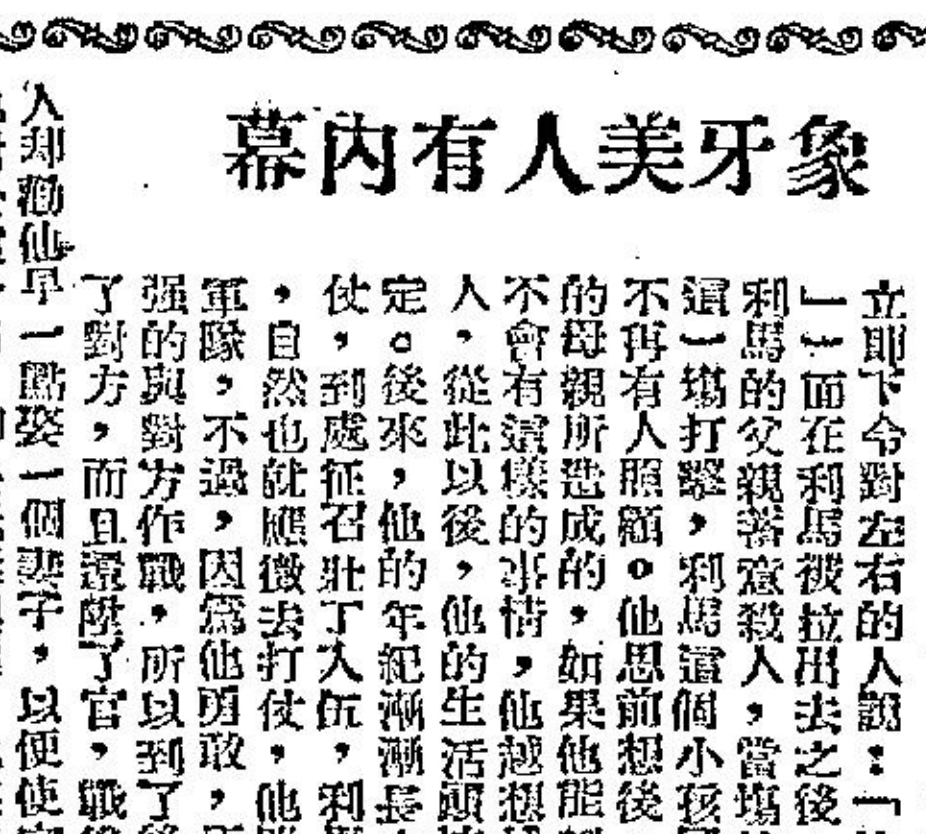 象牙美人有內幕
立即下令對左右的人說：「
」一面在利馬被拉出去之後
利馬的父親蓄意殺人，當塲
這一塲打擊，利馬這個小孩
不再有人照顧。他思前想後
的母親所造成的，如果他能
不會有這樣的事情，他越想
人，從此以後，他的生活顛
定。後來，他的年紀漸漸長
仗，到處征召壯丁入伍，利
，自然也就應徵去打仗，他
軍隊，不過，因爲他勇敢，
强的與對方作戰，所以到了
了對方，而且還陞了官，戰
人却勸他早一點娶一個妻子，以便使